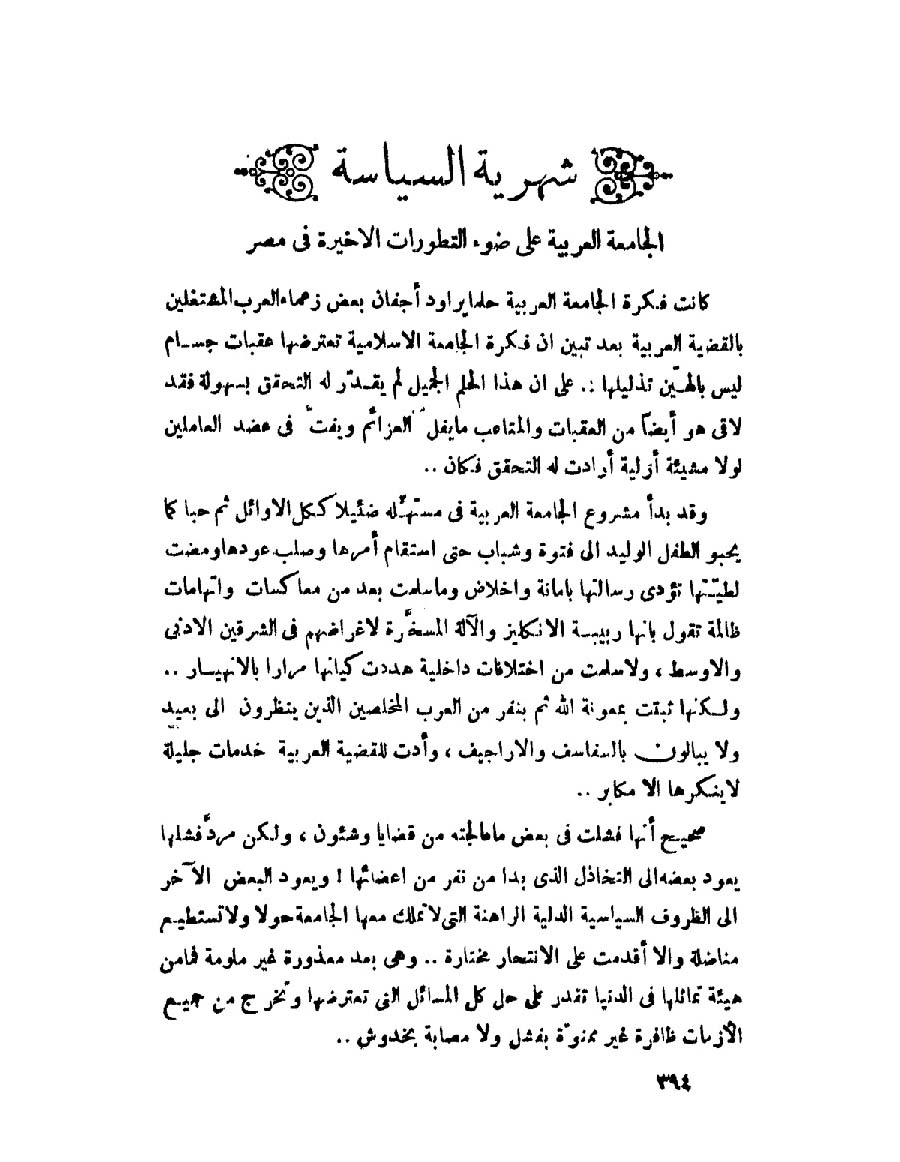 شهرية السياسة
الجامعة العربية على ضوء التطورات الاخيرة فى مصر
كانت فكرة الجامعة العربية حلما يراود أجفان بعض زعماء العرب المشتغلين
بالقضية العربية بعد تبين ان فكرة الجامعة الاسلامية تعترضها عقبات جسام
ليس بالهيّن تذليلها .. على ان هذا الحلم الجميل لم يقدّر له التحقق بسهولة فقد
لاقى هو أيضاً من العقبات والمتاعب مايفلّ العزائم ويفتّ فى عضد العاملين
لولا مشيئة أزلية أرادت له التحقق فكان ..
وقد بدأ مشروع الجامعة العربية فى مستهلّه ضئيلا ككل الاوائل ثم حبا كما
يحبو الطفل الوليد الى فتوة وشباب حتى استقام أمرها وصلب عودها ومضت
لطيّتها تؤدى رسالتها بامانة واخلاص وماسلمت بعد من معاكسات واتهامات
ظالمة تقول بانها ربيبة الانكليز والآلة المسخّرة لاغراضهم فى الشرقين الادنى
والاوسط ، ولاسلمت من اختلافات داخلية هددت كيانها مرارا بالانهيار ..
ولكنها ثبتت بمعونة الله ثم بنفر من العرب المخلصين الذين ينظرون الى بعيد
ولا يبالون بالسفاسف والاراجيف ، وأدت للقضية العربية خدمات جليلة
لاينكرها الا مكابر ..
صحيح أنها فشلت فى بعض ماعالجته من قضايا وشئون ، ولكن مردّ فشلها
يعود بعضه الى التخاذل الذى بدا من نفر من اعضائها ! ويعود البعض الآخر
الى الظروف السياسية الدلية الراهنة التى لاتملك معها الجامعة حولا ولاتستطيع
مناضلة والا أقدمت على الانتحار مختارة .. وهى بعد معذورة غير ملومة فمامن
هيئة تماثلها فى الدنيا تقدر على حل كل المسائل التى تعترضها وتخرج من جميع
الأزمات ظافرة غير ممنوّة بفشل ولا مصابة بخدوش ..
٣٩٤